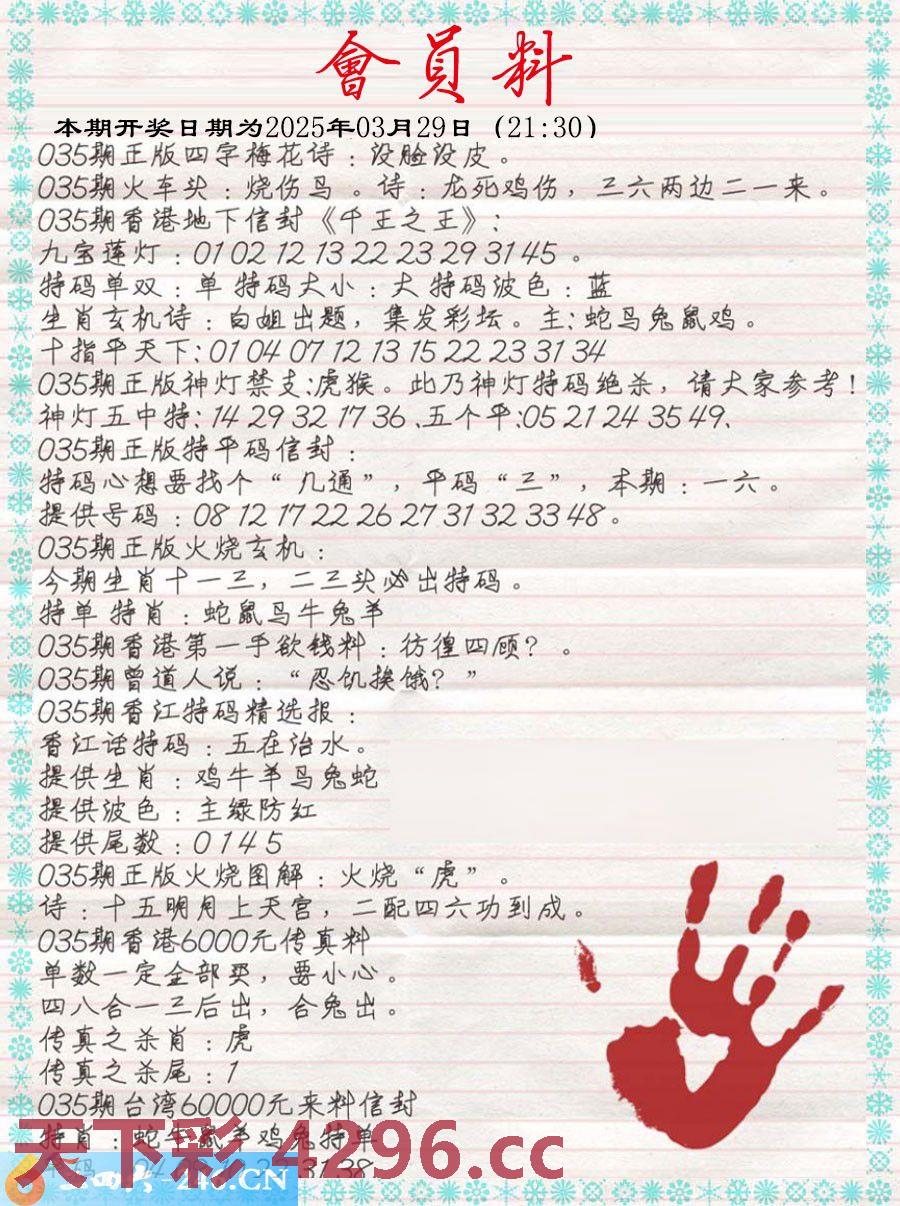 會員料
本期开奖日期为2025年03月29日（21:30）
035期正版四字梅花诗：没脸没皮。
035期火车头：烧伤鸟 。诗：龙死鸡伤，三六两边二一来。
035期香港地下信封《千王之王》：
九宝莲灯：01 02 12 13 22 23 29 31 45 。
特码单双：单 特码大小：大 特码波色：蓝
生肖玄机诗：白姐出题，集发彩坛。主：蛇马兔鼠鸡。
十指平天下：01 04 07 12 13 15 22 23 31 34
035期正版神灯禁支：虎猴。此乃神灯特码绝杀，请大家参考！
神灯五中特：14 29 32 17 36 、五个平：05 21 24 35 49、
035期正版特平码信封：
特码心想要找个“ 九通”，平码“三”，本期：一六。
提供号码：08 12 17 22 26 27 31 32 33 48。
035期正版火烧玄机：
今期生肖十一三，二三头必出特码。
特单 特肖：蛇鼠马牛兔羊
035期香港第一手欲钱料：彷徨四顾？。
035期曾道人说：“忍饥挨饿？”
035期香江特码精选报：
香江话特码：五在治水。
提供生肖：鸡牛羊马兔蛇
提供波色：主绿防红
提供尾数：0 1 4 5
035期正版火烧图解：火烧“虎”。
诗：十五明月上天宫，二配四六功到成。
035期香港6000元传真料
单数一定全部买，要小心。
四八合一三后出，合兔出。
传真之杀肖：虎
传真之杀尾：1
035期台湾60000元来料信封
特肖：蛇牛鼠羊鸡兔特单
天下彩 4296.cc
31 38
246.CN